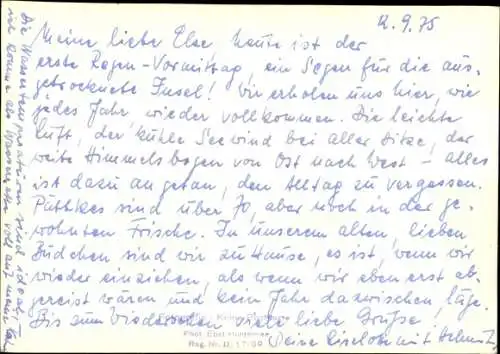 12.9.75
Meine liebe Else, heute ist der
erste Regen-Vormittag, ein Segen für die aus-
getrocknete Insel! Wir erholen uns hier, wie
jedes Jahr, wieder vollkommen. Die leichte
Luft, der kühle Seewind bei aller Hitze, der
weite Himmelsbogen von Ost nach West – alles
ist dazu angetan, den Alltag zu vergessen.
Puttkes sind über 70, aber noch in der ge-
wohnten Frische. In unserem alten, lieben
Büdchen sind wir zu Hause, es ist, wenn wir
wieder einziehen, als wenn wir eben erst ab-
gereist wären und kein Jahr dazwischen läge.
Bis zum Wiedersehen viele liebe Grüße,
Deine Liselotte mit Helmut
Die Wassertemperaturen sind ideal
ich komme als Wasserratte voll auf meine